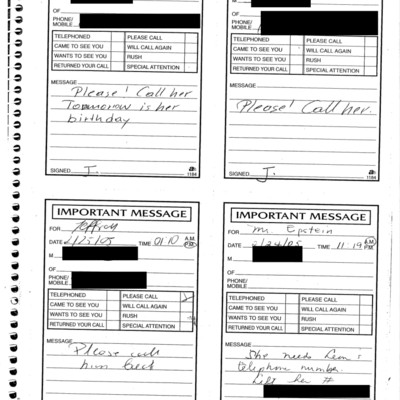 OF
PHONE/
MOBILE
TELEPHONED PLEASE CALL
CAME TO SEE YOU WILL CALL AGAIN
WANTS TO SEE YOU RUSH
RETURNED YOUR CALL SPECIAL ATTENTION
MESSAGE
Please! Call her
Tomorrow is her
birthday
SIGNED J.
1184
OF
PHONE/
MOBILE
TELEPHONED PLEASE CALL
CAME TO SEE YOU WILL CALL AGAIN
WANTS TO SEE YOU RUSH
RETURNED YOUR CALL SPECIAL ATTENTION
MESSAGE
Please! Call her.
SIGNED J.
1184
IMPORTANT MESSAGE
FOR
DATE /25/05 TIME A.M. P.M.
M
OF
PHONE/
MOBILE
TELEPHONED PLEASE CALL
CAME TO SEE YOU WILL CALL AGAIN
WANTS TO SEE YOU RUSH
RETURNED YOUR CALL SPECIAL ATTENTION
MESSAGE
Please call
him back
IMPORTANT MESSAGE
FOR Mr. Epstein
DATE 2/24/05 TIME 11 19 A.M. P.M.
M
OF
PHONE/
MOBILE
TELEPHONED PLEASE CALL
CAME TO SEE YOU WILL CALL AGAIN
WANTS TO SEE YOU RUSH
RETURNED YOUR CALL SPECIAL ATTENTION
MESSAGE
She needs
telephone number.
her #